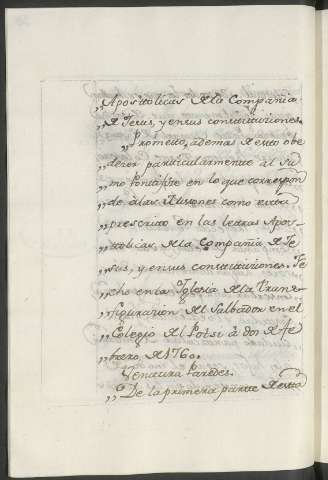 „Apostolicas de la Compañia
„de Jesus, y en sus constituziones.
„Prometo, ademas de esto obe
„dezer particularmente al Su
„mo Pontifize en lo que correspon
„de à las Misiones como està
„prescrito en las letras Apos-
„tolicas, de la Compañia de Je
„sus, y en sus constituziones. Fe
„cho en la Iglesia de la Trans-
„figurazion del Salbador en el
„Colegio de Potosi à dos de fe
„brero, de 1760.
Ventura Paredes.
„De la primera parte de esta